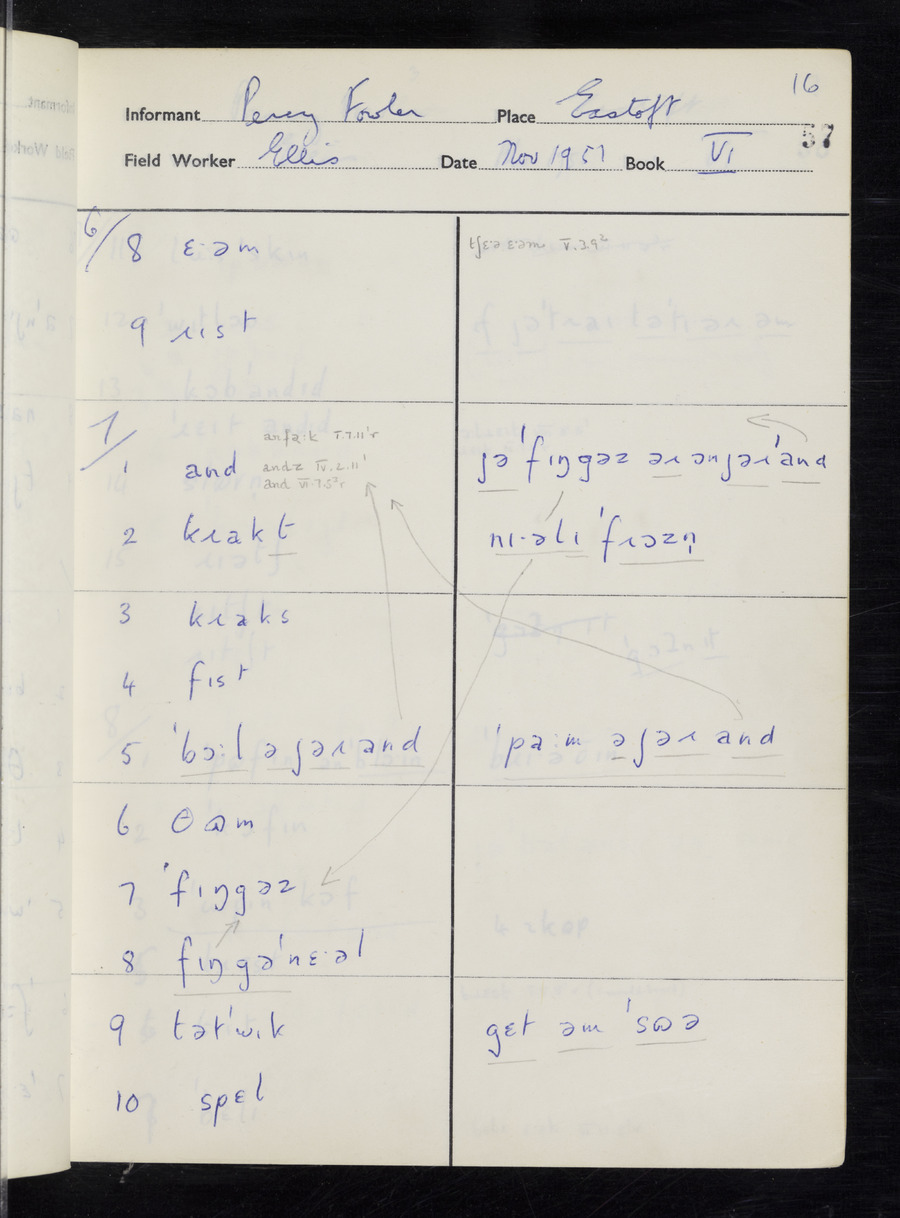 16
Informant Percy Fowler Place Eastoft
57
Field Worker Ellis Date Nov 1951 Book VI
6/8 ɛ·əm
tʃɛ·ə ɛ·əm V.3.9²
9 ɹɪst
7/
anfa:k I.7.11'r
1 and andz IV.2.11'
and VI.7.5²r
jə'fɪŋgəz əɹənjəɹ'and
2 kɹakt
nɪ·əlɪ 'fɹɔzn̩
3 kɹaks
4 fɪst
5 'bɔ:l əjəɹand
'pa:m əjəɹand
6 θɷm
7 'fɪŋgəz
8 fɪŋgə'nɛ·əl
9 tət'wɪk
gɛt əm 'sɷə
10 spɛl